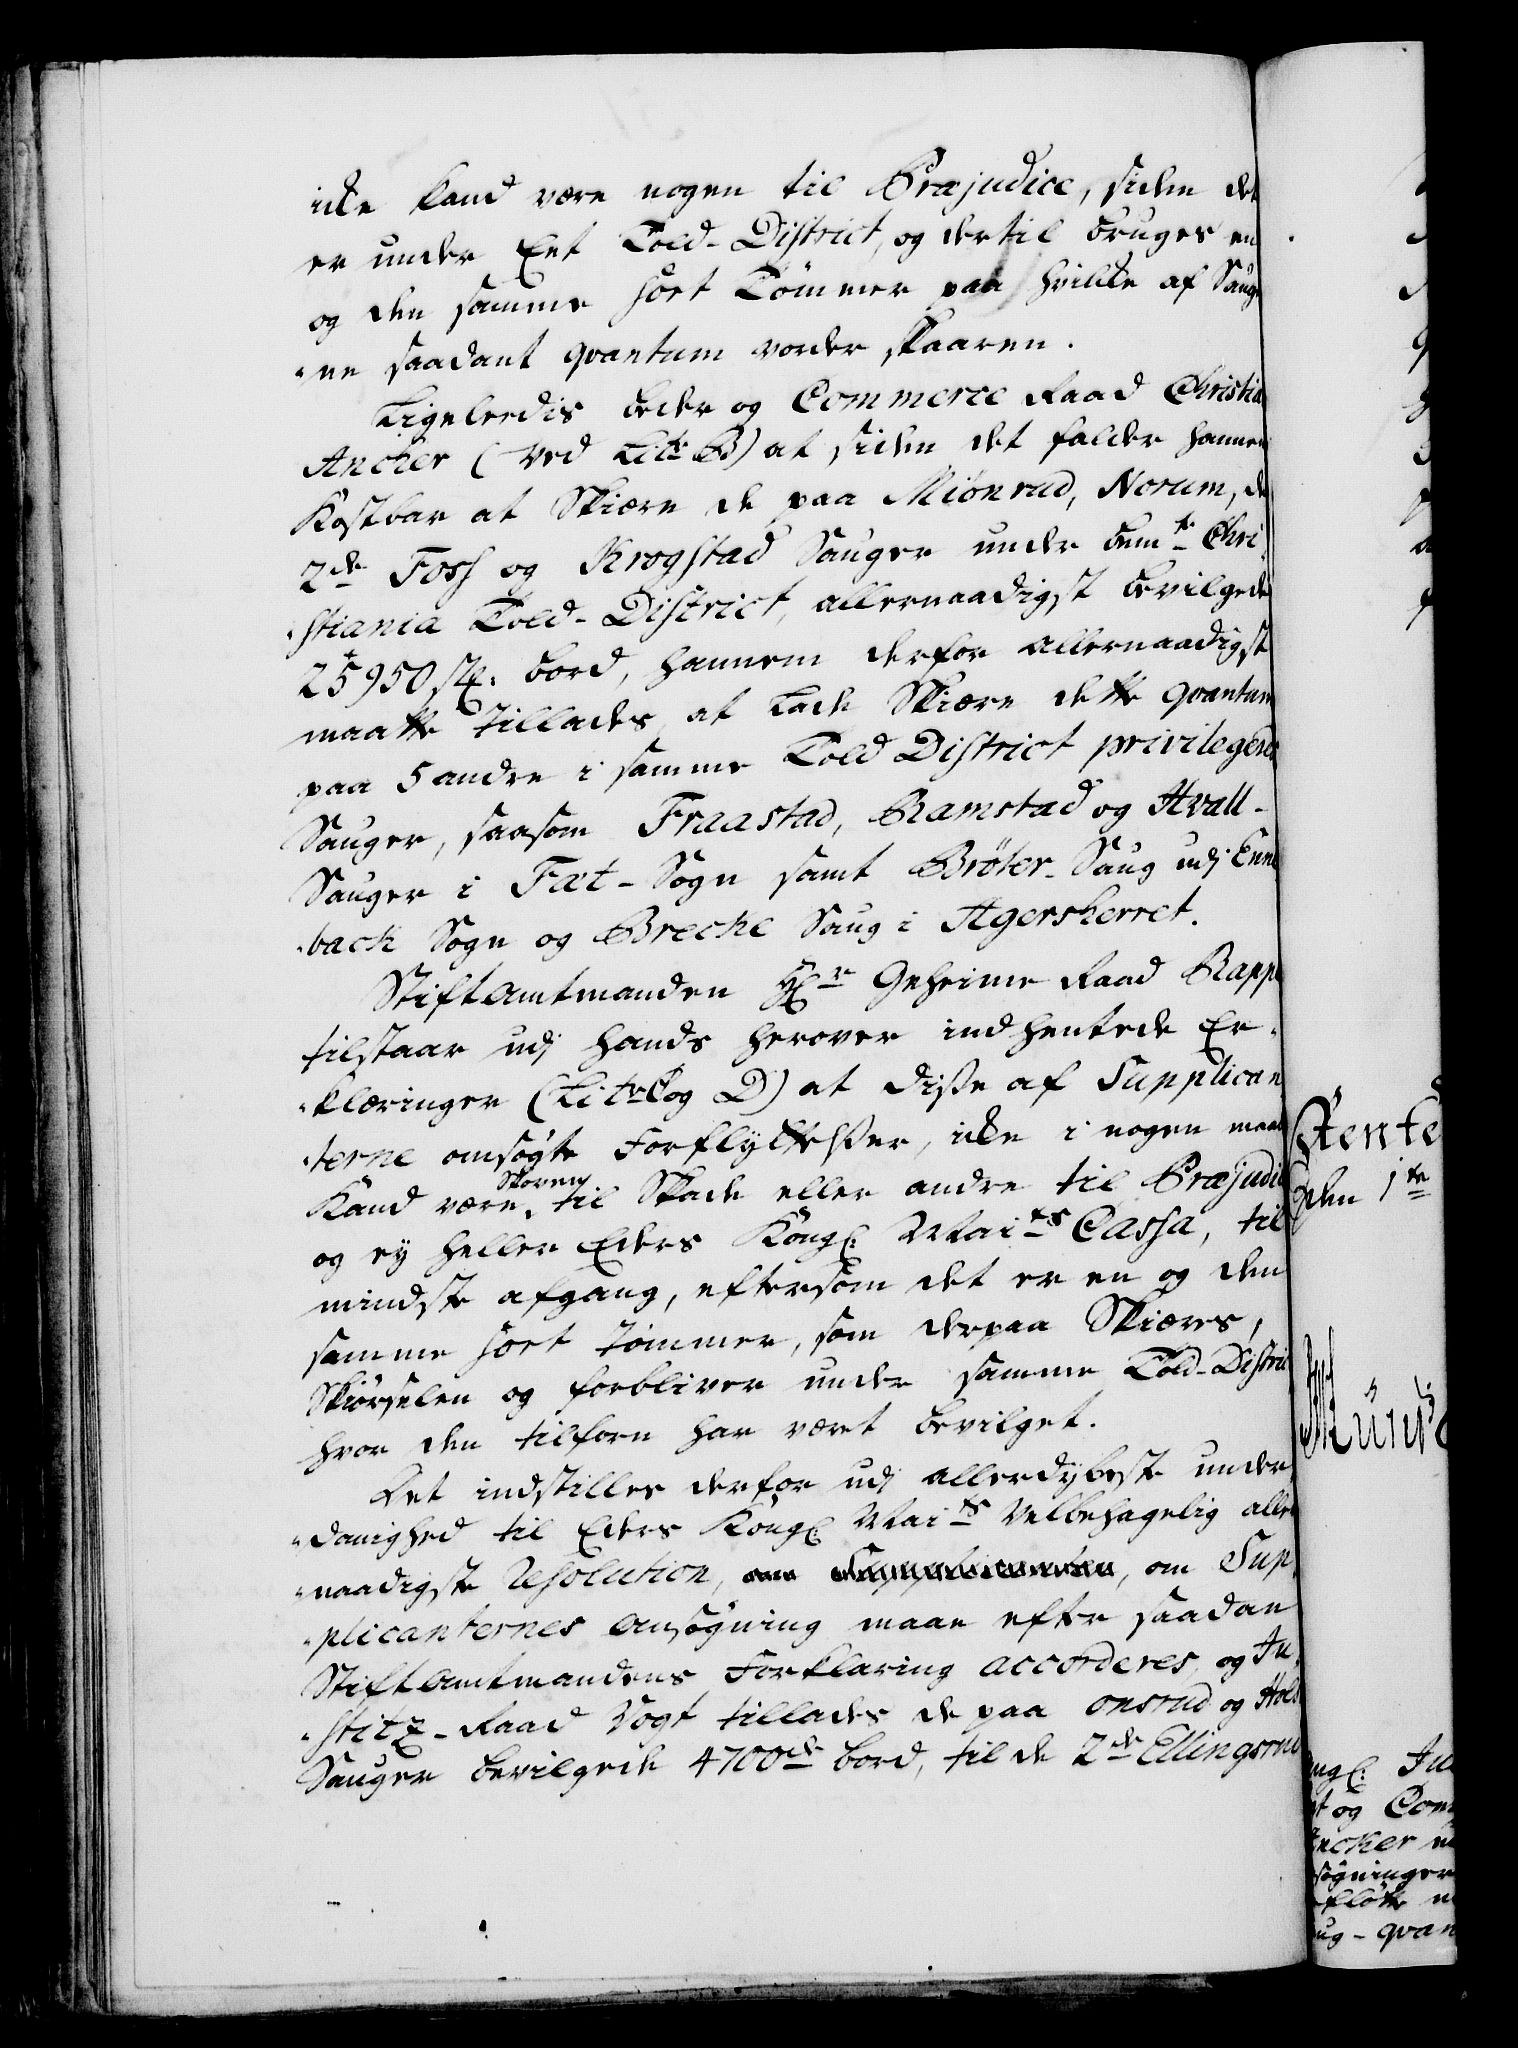 icke kand være nogen til Præjudice, siden det
er under Eet Told-District, og dertil bruges en
og den samme sort Tömmer paa hvilke af Sauge
-ne saadant qvantum vorder skaaren.
Ligeledis beder og Commerce Raad Christia
Ancher (ved Litr B) at siden det falder hannem
Kostbar at Skiære de paa Miönrud, Norum, de
2de Foss og Krogstad Sauger under bemte Chri-
-stiania Told-District, allernaadigst bevilgede
25950 st. bord, hannem derfor allernaadigst
maatte tillades at lade Skiære dette qvantum
paa 5 andre i samme Told District privilegerede
Sauger, saasom Fraastad, Ramstad og Hvall-
Sauger i Fæt-Sogn samt Bröter-Saug udj Enne
-bach Sogn og Breche Saug i Agersherret.
Stiftamtmanden Hr Geheime Raad Rappe
tilstaar udj hands herover indhentede Er-
-klæringer (Litr C og D) at disse af Supplican
-terne omsögte Forflyttelser, icke i nogen maade
Kand være Skoven til Skade eller andre til Præjudice
og ey heller Eders Kongl: Maits Cassa, til
mindste afgang, eftersom det er en og den
samme sort tömmer, som derpaa Skiæres,
Skiörselen og forbliver under samme Told-Distric
hvor den tilforn har været bevilget.
Det indstilles derfor udj allerdybeste under
-danighed til Eders Kongl: Maits Velbehagelig aller
-naadigste Resolution, om Supplicanten, om Sup
-plicanternes Ansögning maae efter saadan
Stiftamtmandens Forklaring accorderes, og Ju-
-stitz-Raad Vogt tillades de paa Onsrud og Hols
Sauger bevilgede 4700de bord, til de 2de Ellingsrud
Rente
den 1te
ngl: Ju
t og Com
ncher
sögninger
flötte
ug-qvan